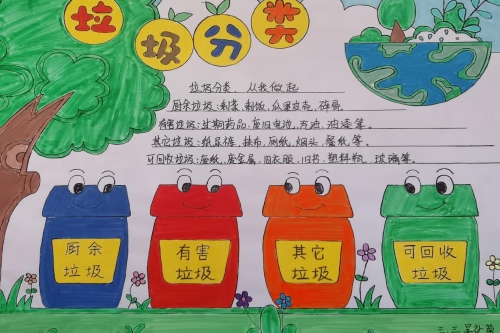 垃圾分类
垃圾分类，从我做起
厨余垃圾:剩菜,剩饭,瓜果皮壳,碎骨。
有害垃圾:过期药品,废旧电池,方油,油漆等。
其它垃圾:纸尿裤,抹布,厕纸,烟头,餐纸等。
可回收垃圾:废纸,废金属,旧衣服,旧书,塑料瓶,玻璃等。
厨余
垃圾
有害
垃圾
其它
垃圾
可回收
垃圾
三.三